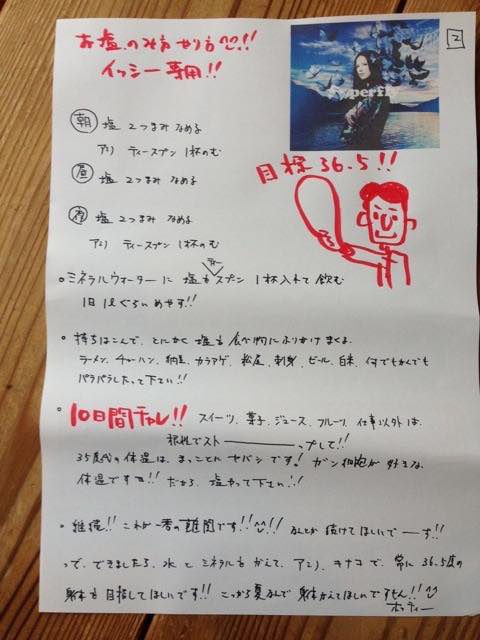 2
お塩のみ方 やり方!!
イッシー専用!!
Superfly
朝 塩 2つまみ なめる
アミノ ティースプン 1杯のむ
昼 塩 2つまみ なめる
目標 36.5!!
夜 塩 2つまみ なめる
アミノ ティースプン 1杯のむ
ティー
ミネラルウォーターに 塩を スプン 1杯入れて 飲む
1日 1Lぐらい めやす!!
持ちはこんで、とにかく 塩を食べ物にふりかけまくる
ラーメン、チャーハン、納豆、カラアゲ、 刺身、ビール、白米、何でもかんでも
パラパラしたって下さい!!
10日間チャレ!! スイーツ、菓子、ジュース、フルーツ、仕事以外は、
根性でストーーーップして!!
35度代の体温は、まっことに ヤバシです! ガン細胞が好きな、
体温ですヨ!! だから、塩やって下さい!!
継続!! これが一番の難関です!! なんとか続けてほしいでーーす!!
って、できましたら、水と ミネラルを かえて、アミノ、キナコで、常に36.5度の
身体を目指してほしいです!! こっから夏なんで 身体かえてほしいですもん!!
ホッティー